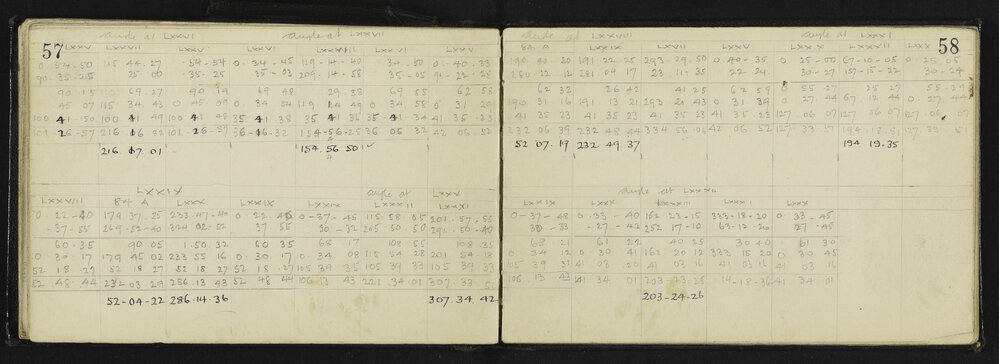 57
angle at LXXVI angle at LXXVII
LXXV LXXVII LXXV LXXVI LXXV
0-54-50 115 44-27 -54-54 0-34-45 119-14-40 34-50 0-40-33
90-35-25 25-00 35-25 35-03 209-14-58 35-05 91-22-25
90 15 69-27 90 19 69 48 29 38 69 55 62 58
45 07 115 34 43 0 45 09 0 34 54 119 14 49 0 34 58 0 31 29
100 41-50 100 41 49 100 41 48 35 41 38 35 41 36 35 41-34 41 35 23
101 26-57 216 16 32 101-26-57 36-16-32 154-56-25 36 06 32 42 06 52
216 17 01 154 56 50
LXXIX angle at LXXV
LXXVIII 84 A LXXX LXXIX LXXXII LXXXI
0 22-40 179 37 25 233-47-40 0 22 45 0-37-45 115 58 05 201-57-55
-37-55 269-52-40 324 02-52 37 55 30-32 205 50 50 291-50-40
60-35 90.05 1.50.32 60 35 68 17 108 55 108 35
0 30 17 179 45 02 233 55 16 0 30 17 0 34 08 115 54 28 201 54 18
52 18 27 52 18 27 52 18 27 52 18-27 105 39 35 105 39 33 105 39 33
52 48 44 232 03 29 286 13 43 52 48 44 106 13 43 221 34 01 307 33
52-04-22 286-14-36 307.34.42
58
angle at LXXVIII angle at LXXXI
84 A LXXIX LXXVII LXXX LXXXII LXX
190 40 20 191 22 25 293-29-50 0-40-35 0 25-00 67-10-05 0 25 05
280 22 12 281 04 17 23 11-35 22 24 30-27 157-15-22 30-24
62 32 26 42 41 25 62 59 0 55 27 25 27 55-29
190 31 16 191 13 21 293 20 43 0 31 39 0 27 44 67 12 44 0 27 44
41 35 23 41 35 23 41 35 23 41 35-23 127 06 07 127 06 07 127 06 07
232 06 39 232 48 44 334 56 06 42 06 52 127 33 51 194 18 51 127 33 51
52 07 19 232 49 37 194 19.35
angle at LXXXII
LXXIX LXXXI LXXX
0-37-48 0 33-40 162 23-15 333-18-20 0 33-45
30-33 -27-42 252 17-10 63-12-20 27-45
68-21 61 22 40 25 30 40 61 30
0 34 12 0 30 41 162 20 12 333 15 20 0 30 45
105 39 31 41 03 20 41 03 16 41 03 16 41 03 16
106 13 42 41 34 01 203-23-25 14-18-36 41 34 01
203-24-26